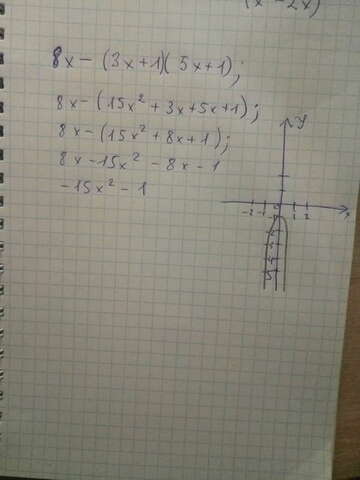 (x - 2x)
8x - (3x+1)(5x+1);
8x - (15x² + 3x + 5x + 1);
8x - (15x² + 8x + 1);
8x - 15x² - 8x - 1
-15x² - 1
y
-2 -1 1 2 x